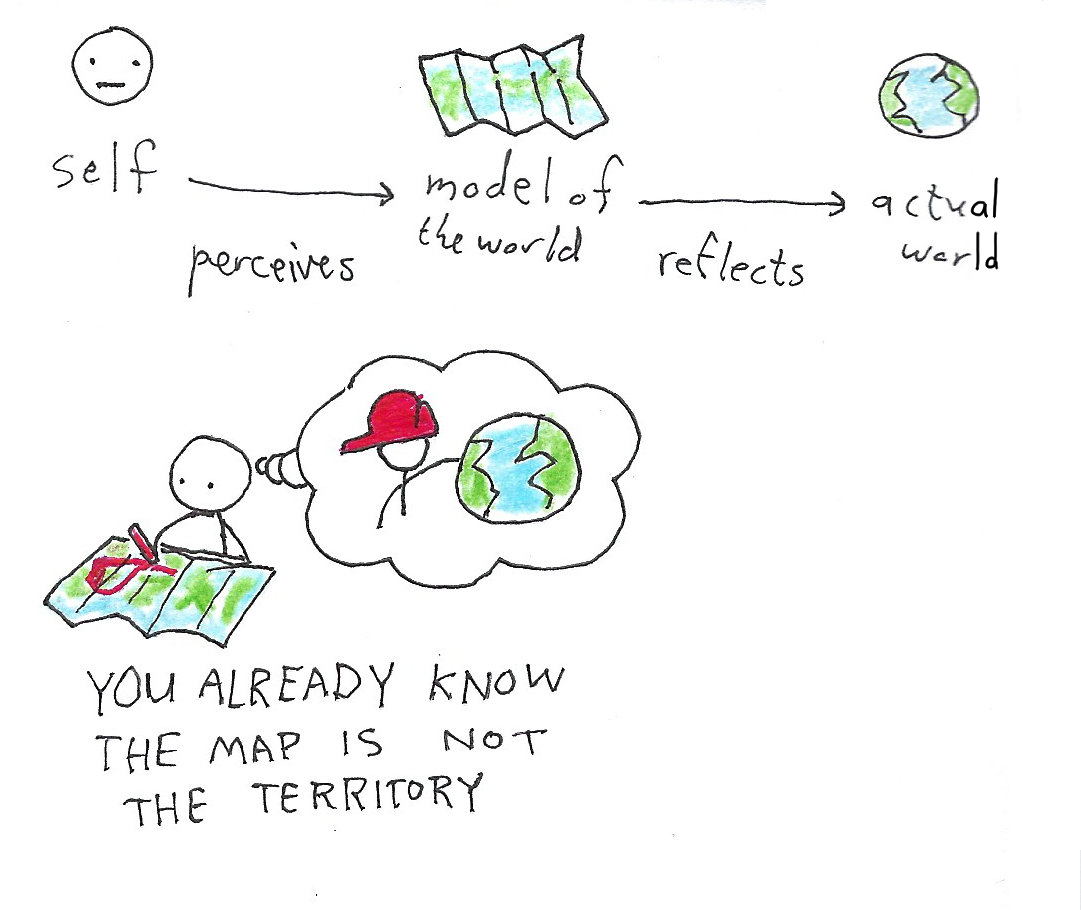 self
perceives
model of
the world
reflects
actual
world
YOU ALREADY KNOW
THE MAP IS NOT
THE TERRITORY